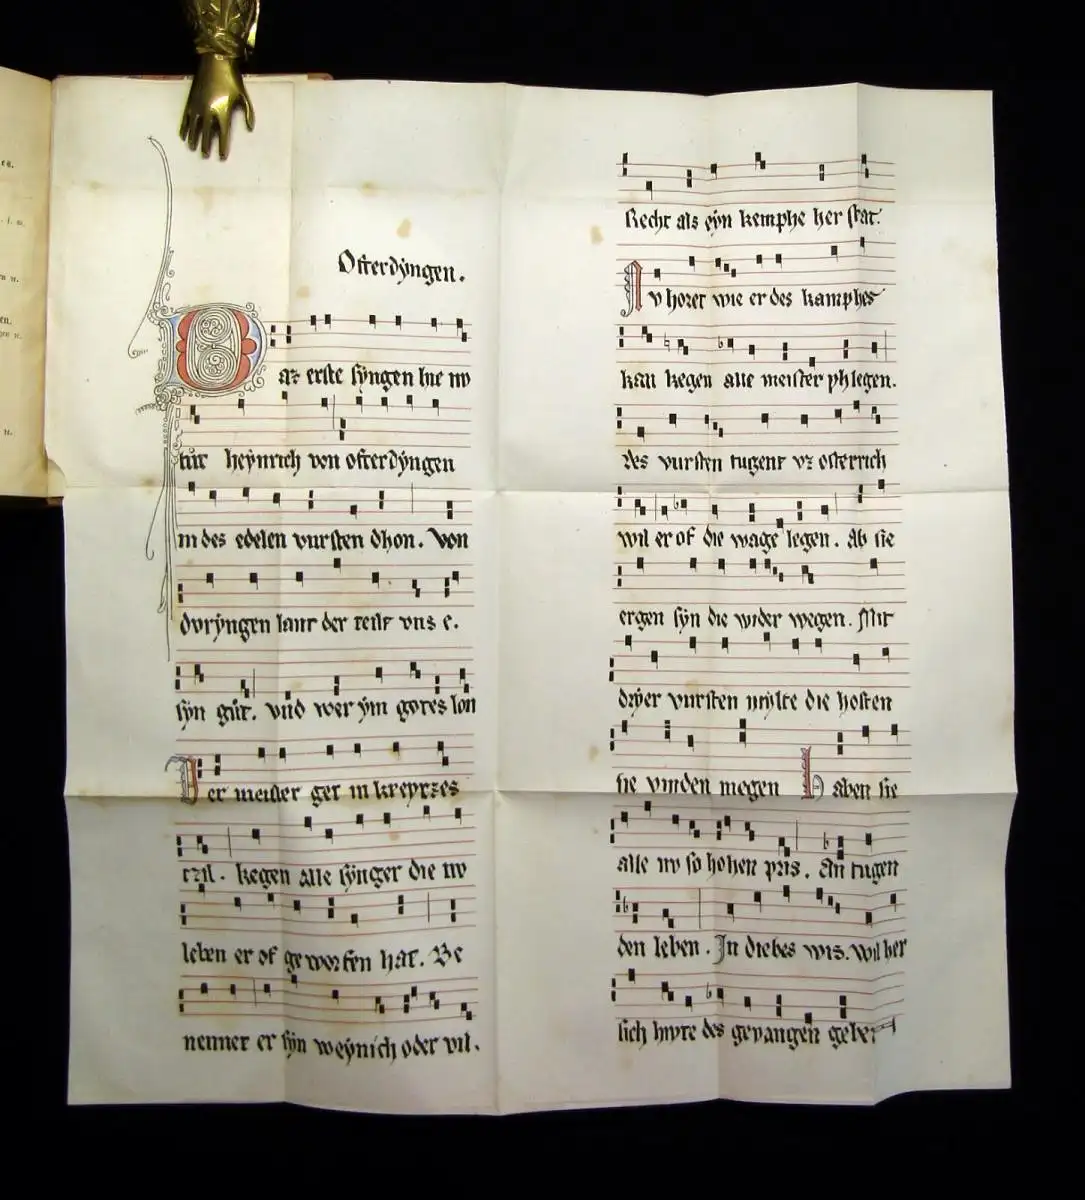 es.
n.
n.
Ofterdẏngen.
Daz erste sẏngen hie nv
tůt heẏnrich von ofterdẏngen
in des edelen vursten dhon. Von
dvrẏngen lant der teilt vns e.
sẏn gůt. vnd wer ẏm gotes lon
Der meister get in kreẏtzes
tzil. kegen alle sẏnger die nv
leben er of geworfen hat. Be
nennet er sẏn weẏnich oder vil.
Recht als eẏn kemphe her stat.
Nv horet wie er des kamphes
kan kegen alle meister phlegen.
des vursten tugent vz osterrich
wil er of die wage legen. Ab sie
ergen sẏn die wider wegen. Mit
drẏer vursten mẏlte die hosten
sie vinden megen Haben sie
alle nv so hohen pris. An tugen
den leben. In diebes wis. wil her
sich hivte des gevangen geben